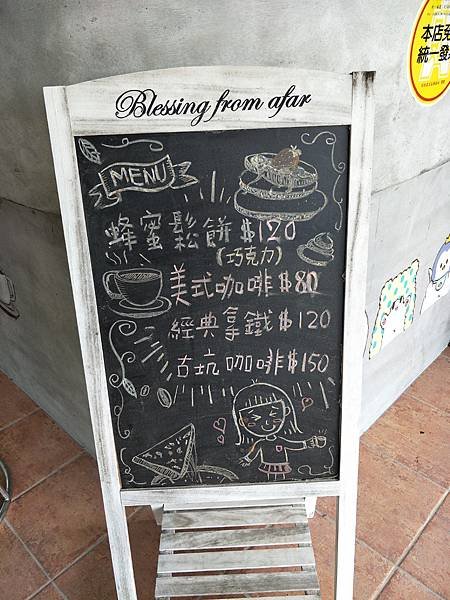 Blessing from afar
MENU
蜂蜜鬆餅 $120
(巧克力)
美式咖啡 $80
經典拿鐵 $120
古坑咖啡 $150
本店免
統一發